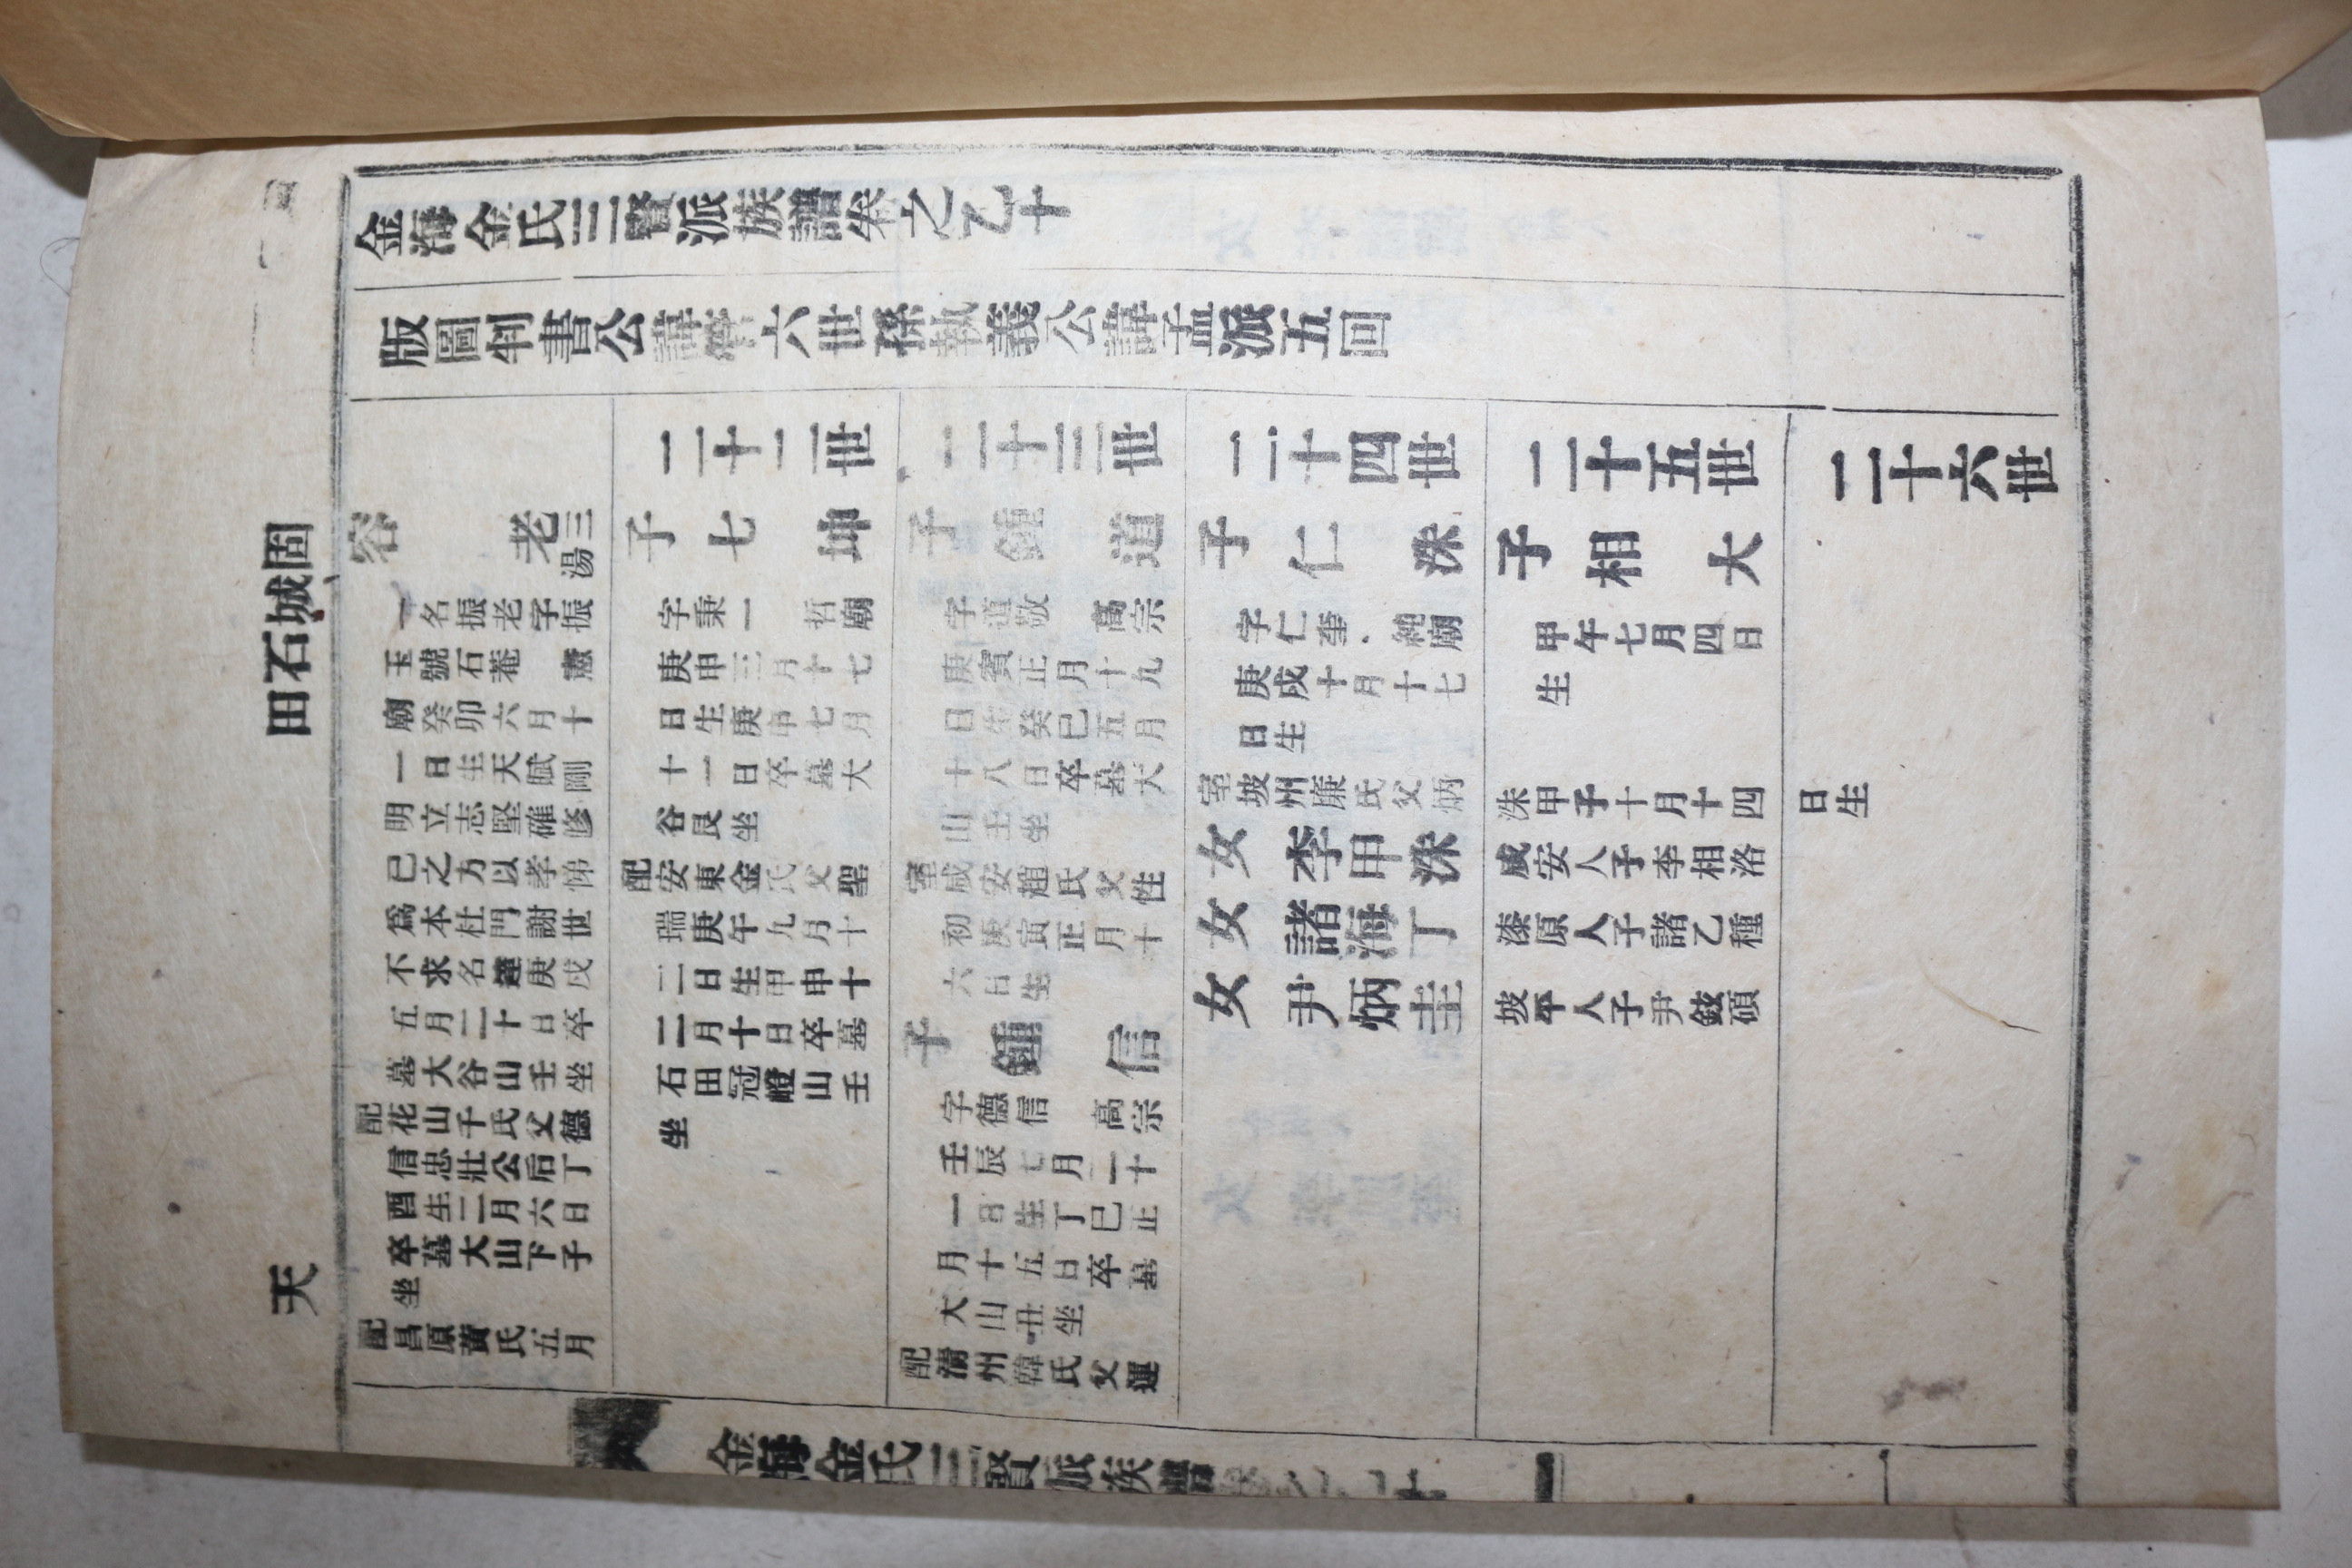 金海金氏三賢派族譜卷之乙十
版圖判書公諱管六世孫執義公諱孟派五回
固城石田
天
容老
三湯
一名振老字振
玉號石菴 憲
廟癸卯六月十
一日生天賦剛
明立志堅確修
已之方以孝悌
爲本杜門謝世
不求名達庚戌
五月二十日卒
墓大谷山壬坐
配花山千氏父德
信忠壯公后丁
酉生二月六日
卒墓大山下子
坐
配昌原黃氏五月
二十二世
子七坤
字秉一 哲廟
庚申三月十七
日生庚申七月
十一日卒墓大
谷艮坐
配安東金氏父聖
瑞庚午九月十
二日生甲申十
二月十日卒墓
石田冠嶝山壬
坐
二十三世
子鍾道
字道敬 高宗
庚寅正月十九
日生癸巳五月
十八日卒墓大
山壬坐
室咸安趙氏父性
初庚寅正月十
六日生
子鍾信
字德信 高宗
壬辰七月二十
一日生丁巳正
月十五日卒墓
大山丑坐
配清州韓氏父運
二十四世
子仁洙
字仁奎 純廟
庚戌十月十七
日生
室坡州廉氏父炳
女李甲洙
女諸海丁
女尹炳圭
二十五世
子相大
甲午七月四日
生
洙甲子十月十四
咸安人子李相洛
漆原人子諸乙種
坡平人子尹鉉碩
二十六世
日生
金海金氏三賢派族譜卷之乙十
一